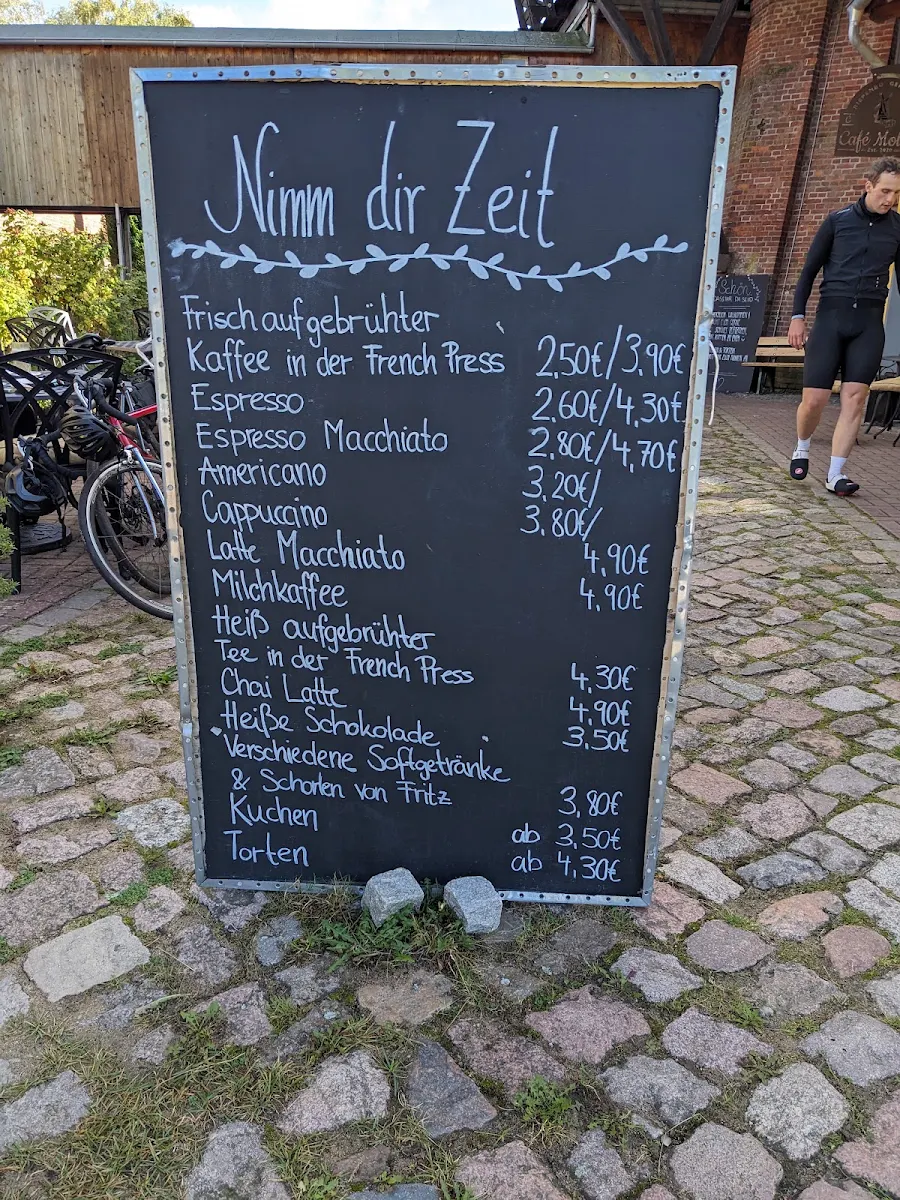 Nimm dir Zeit
Frisch aufgebrühter
Kaffee in der French Press 2.50€/3.90€
Espresso 2.60€/4.30€
Espresso Macchiato 2.80€/4.70€
Americano 3.20€/
Cappuccino 3.80€/
Latte Macchiato 4.90€
Milchkaffee 4.90€
Heiß aufgebrühter
Tee in der French Press 4.30€
Chai Latte 4.90€
Heiße Schokolade 3.50€
Verschiedene Softgetränke
& Schorlen von Fritz 3,80€
Kuchen ab 3.50€
Torten ab 4,30€
Café
Schön